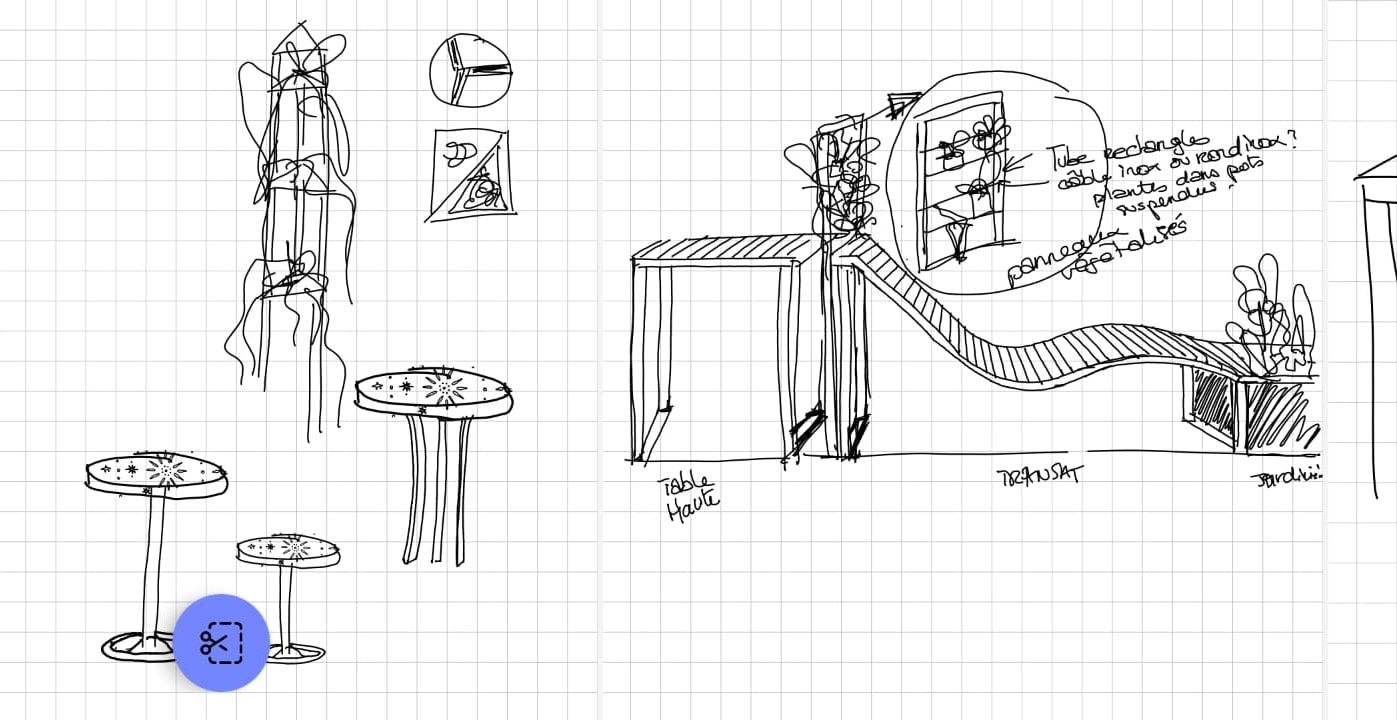 Tube rectangles
câble inox ou rond inox?
plantes dans pots
suspendus.
panneaux
végétalisés
Table
Haute
TRANSAT
Jardini